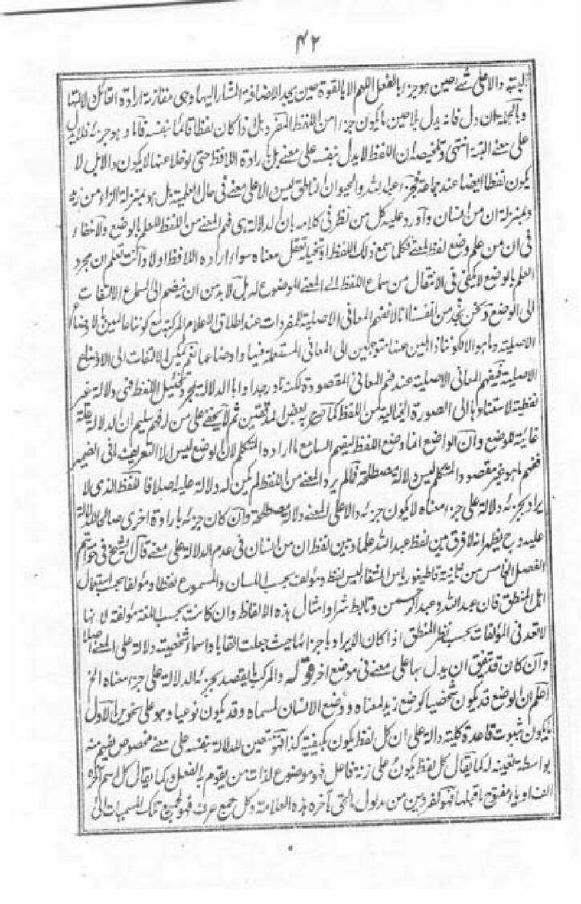 ۴۲
البتة والا على شئ حين هو جزء بالفعل اللهم الا بالقوة حين يجد الاضافة المشار اليها وهى مقارنة ارادة القائل دلالته بها
وبالجملة ان دل فانه يدل لا حين ما يكون جزءا من اللفظ المفرد بل اذا كان لفظا قائما بنفسه فاما وهو جزء فلا يدل
على معنى البتة انتهى وتلخيصه ان اللفظ لا يدل بنفسه على معنى بل بارادة اللافظ حتى لو خلا عنها لا يكون دالا بل لا
يكون لفظا ايضا عند جماعة فجزء عبد الله والحيوان الناطق ليس دالا على معنى فى حال العلمية بل هو بمنزلة الزاء من زيد
وبمنزلة ان من انسان وأورد عليه كل من نظر فى كلامه بان الدلالة هى فهم المعنى من اللفظ للعلم بالوضع ولا خفاء
فى ان من علم وضع لفظ لمعنى فكلما سمع ذلك اللفظ او تخيله تعقل معناه سواء اراده اللافظ اولا وانت تعلم ان مجرد
العلم بالوضع لا يكفى فى الانتقال من سماع اللفظ الى المعنى الموضوع له بل لا بد من ان ينضم الى السماع الالتفات
الى الوضع ونحن نجد من انفسنا انا لا نفهم المعانى الاصلية للمفردات عند اطلاق الاعلام المركبة مع كوننا عالمين بالاوضاع
الاصلية وما هو الا لكوننا ذاهلين عنها متوجهين الى المعانى المستعملة فيها واوضاعها نعم يمكن الالتفات الى الاوضاع
الاصلية فتفهم المعانى الاصلية عند فهم المعانى المقصودة لكنه نادر جدا واما الدلالة بمجرد تخييل اللفظ فهى دلالة غير
لفظية لاستنادها الى الصورة الخيالية من اللفظ كما صرح به بعض المدققين ثم لا يخفى على من له فهم سليم ان الدلالة علة
غائية للوضع وان الواضع انما وضع اللفظ ليفهم السامع ما اراده المتكلم لان الوضع ليس الا لتعريف ما فى الضمير
ففهم ما هو غير مقصود للمتكلم ليس دلالة مصطلحة فما لم يرد المعنى من اللفظ لم يكن له دلالة عليه اصلا فاللفظ الذى لا
يراد بجزئه دلالة على جزء معناه لا يكون جزءه دالا على المعنى دلالة مصطلحة وان كان جزءه بارادة اخرى صالحا للدلالة
عليه وح يظهر انه لا فرق بين لفظ عبد الله علما وبين لفظ ان من انسان فى عدم الدلالة على معنى قال الشيخ فى
الفصل الخامس من قاطيغورياس الشفا ليس لفظ ومؤلف بحسب اللسان والمسموع لفظا ومؤلفا بحسب استعمال
اهل المنطق فان عبد الله وعبد الرحمن وتابط شرا وامثال هذه الالفاظ وان كانت بحسب اللغة مؤلفة لانها
لا تعد فى المؤلفات بحسب نظر المنطق اذا كان لا يراد باجزائها حيث جعلت القابا واسماء شخصية دلالة على المعنى اصلا
وان كان قد يتفق ان يدل بها على معنى فى موضع اخر قوله والمركب ما يقصد بجزئه الدلالة على جزء معناه الخ
اعلم ان الوضع قد يكون شخصيا كوضع زيد لمعناه ووضع الانسان لمسماه وقد يكون نوعيا وهو على نحوين الاول
ما يكون بثبوت قاعدة كلية دالة على ان كل لفظ يكون بكيفية كذا فهو متعين للدلالة بنفسه على معنى مخصوص يفهم منه
بواسطة تعيينه له كما يقال كل لفظ يكون على زنة فاعل فهو موضوع لذات من يقوم به الفعل وكما يقال كل اسم آخره
الف او ياء مفتوح ما قبلها فهو لفردين من مدلول ما الحق بآخره هذه العلامة وكل جمع عرف فهو لجميع تلك المسميات الى